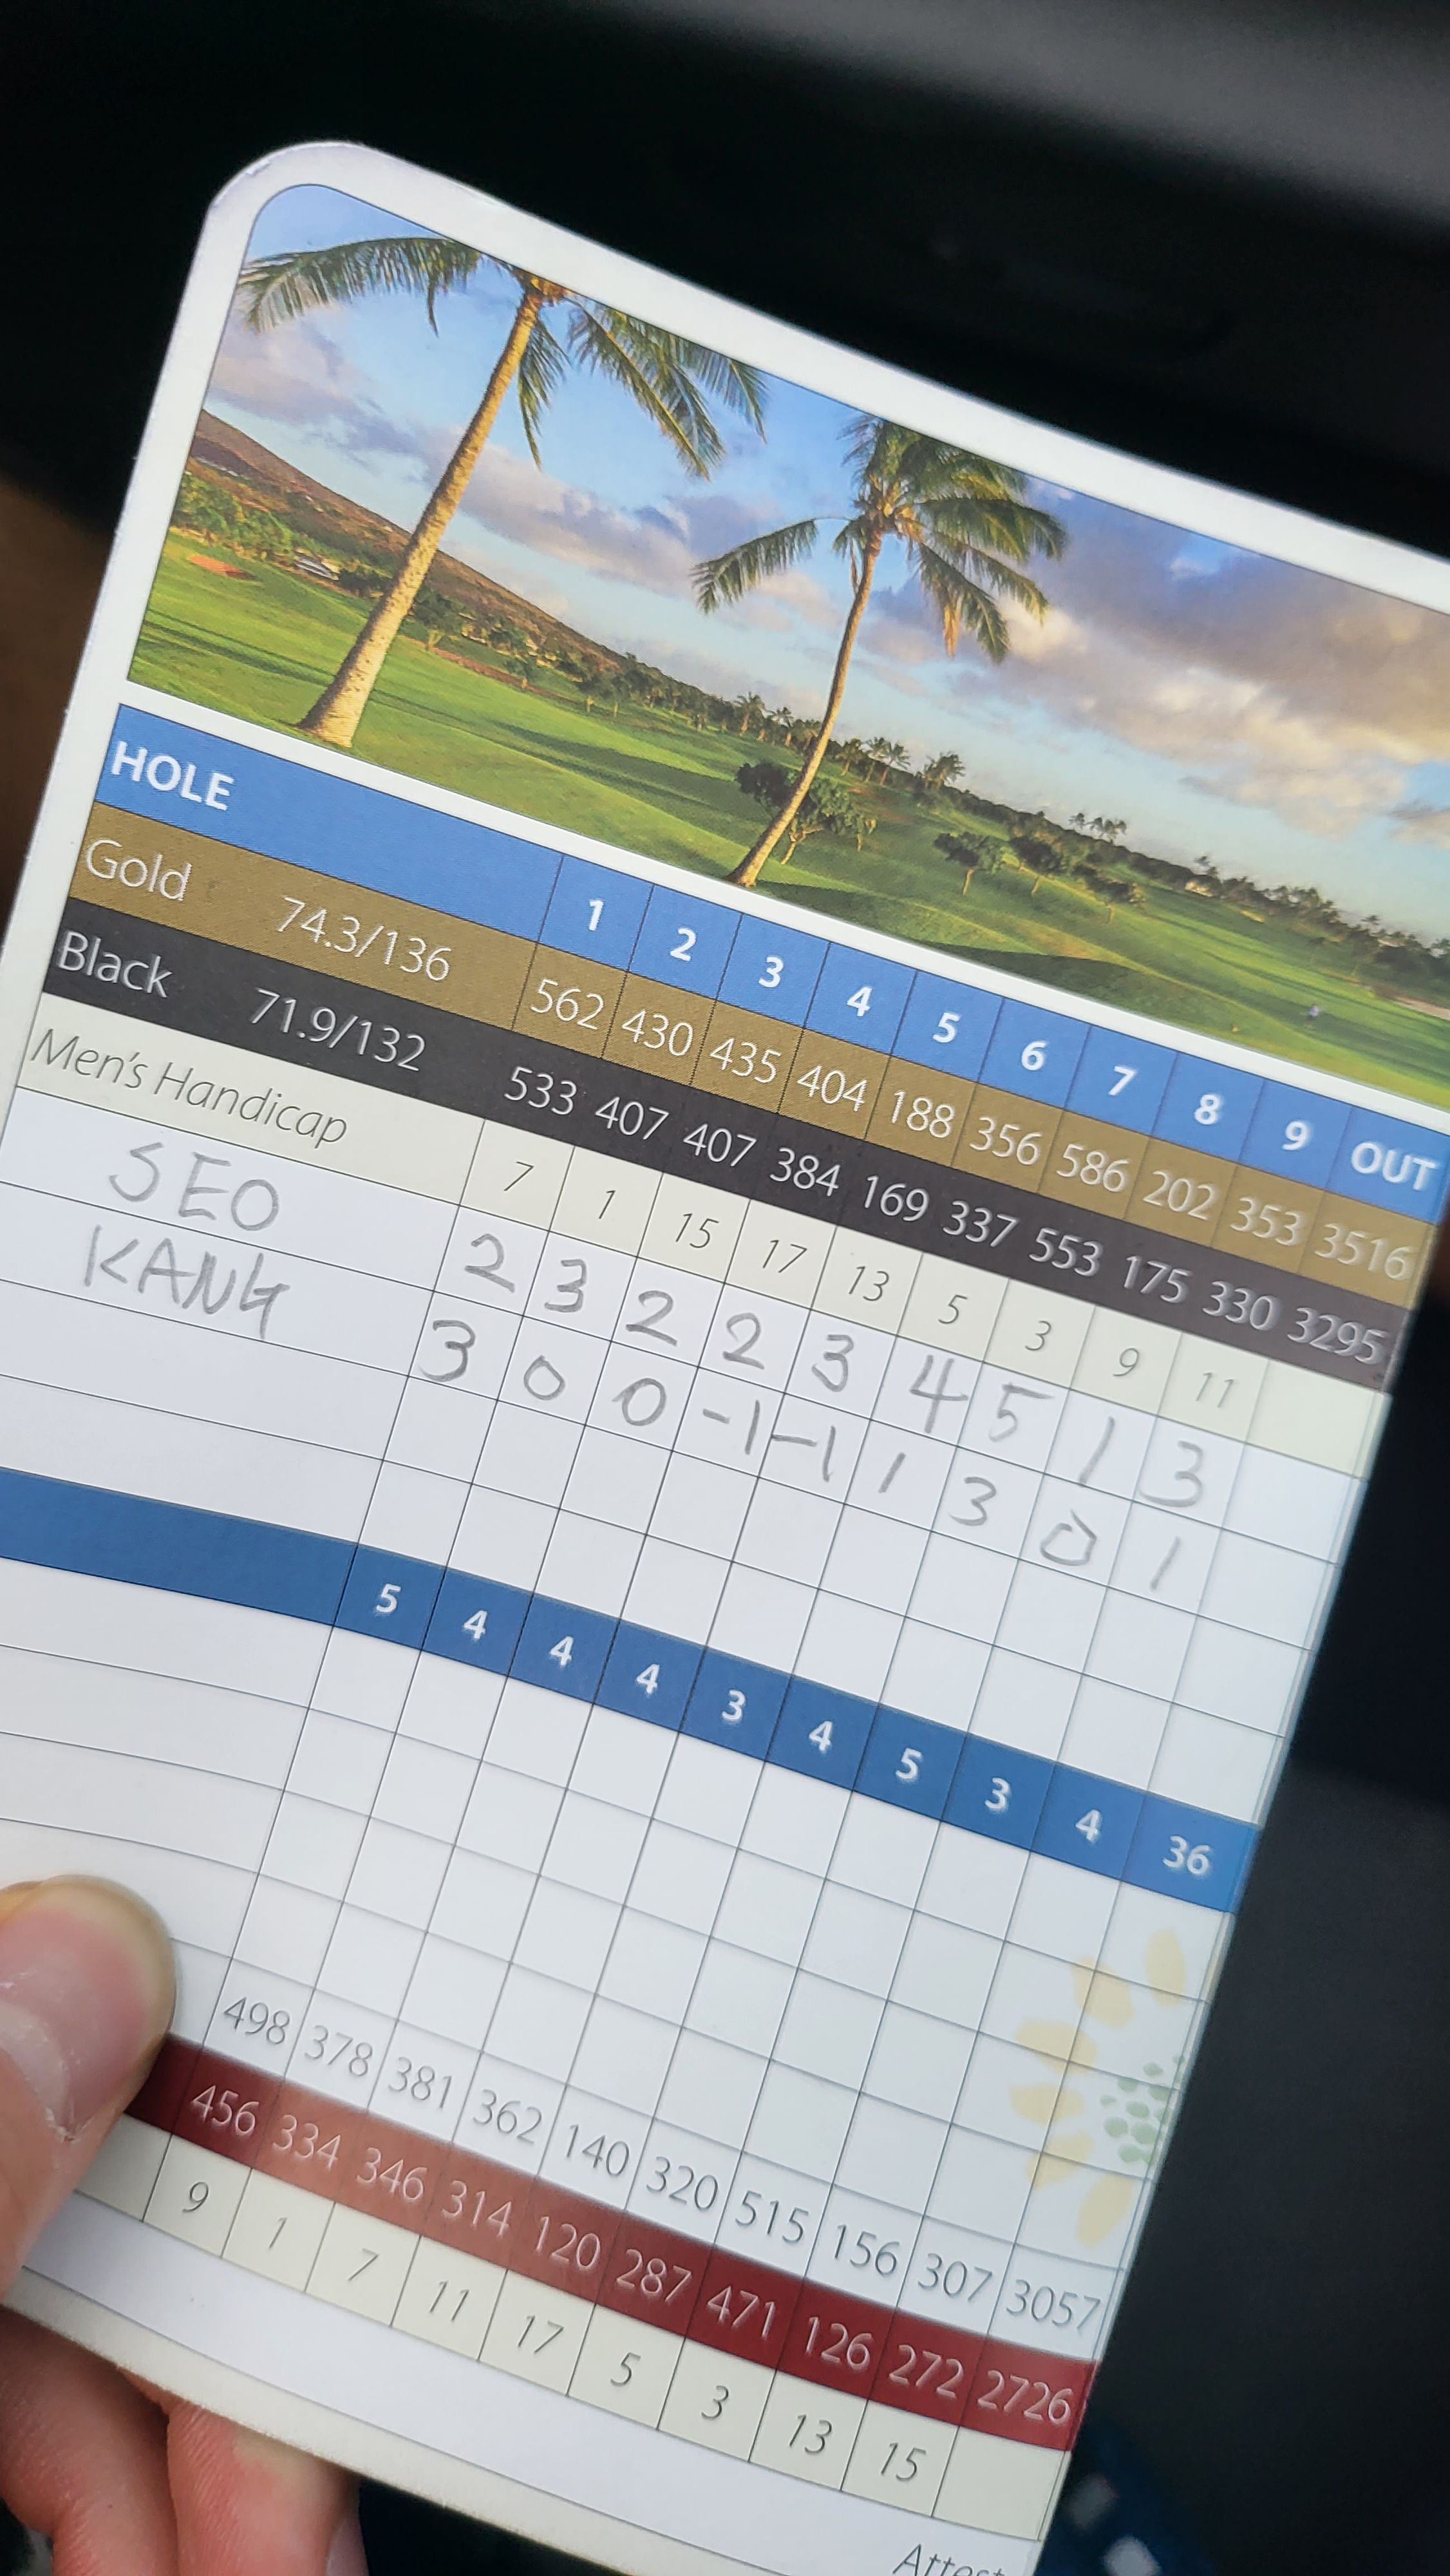 HOLE 1 2 3 4 5 6 7 8 9 OUT
Gold 74.3/136 562 430 435 404 188 356 586 202 353 3516
Black 71.9/132 533 407 407 384 169 337 553 175 330 3295
Men's Handicap 7 1 15 17 13 5 3 9 11
SEO 2 3 2 2 3 4 5 1 3
KANG 3 0 0 -1 -1 1 3 0 1
5 4 4 4 3 4 5 3 4 36
498 378 381 362 140 320 515 156 307 3057
456 334 346 314 120 287 471 126 272 2726
9 1 7 11 17 5 3 13 15